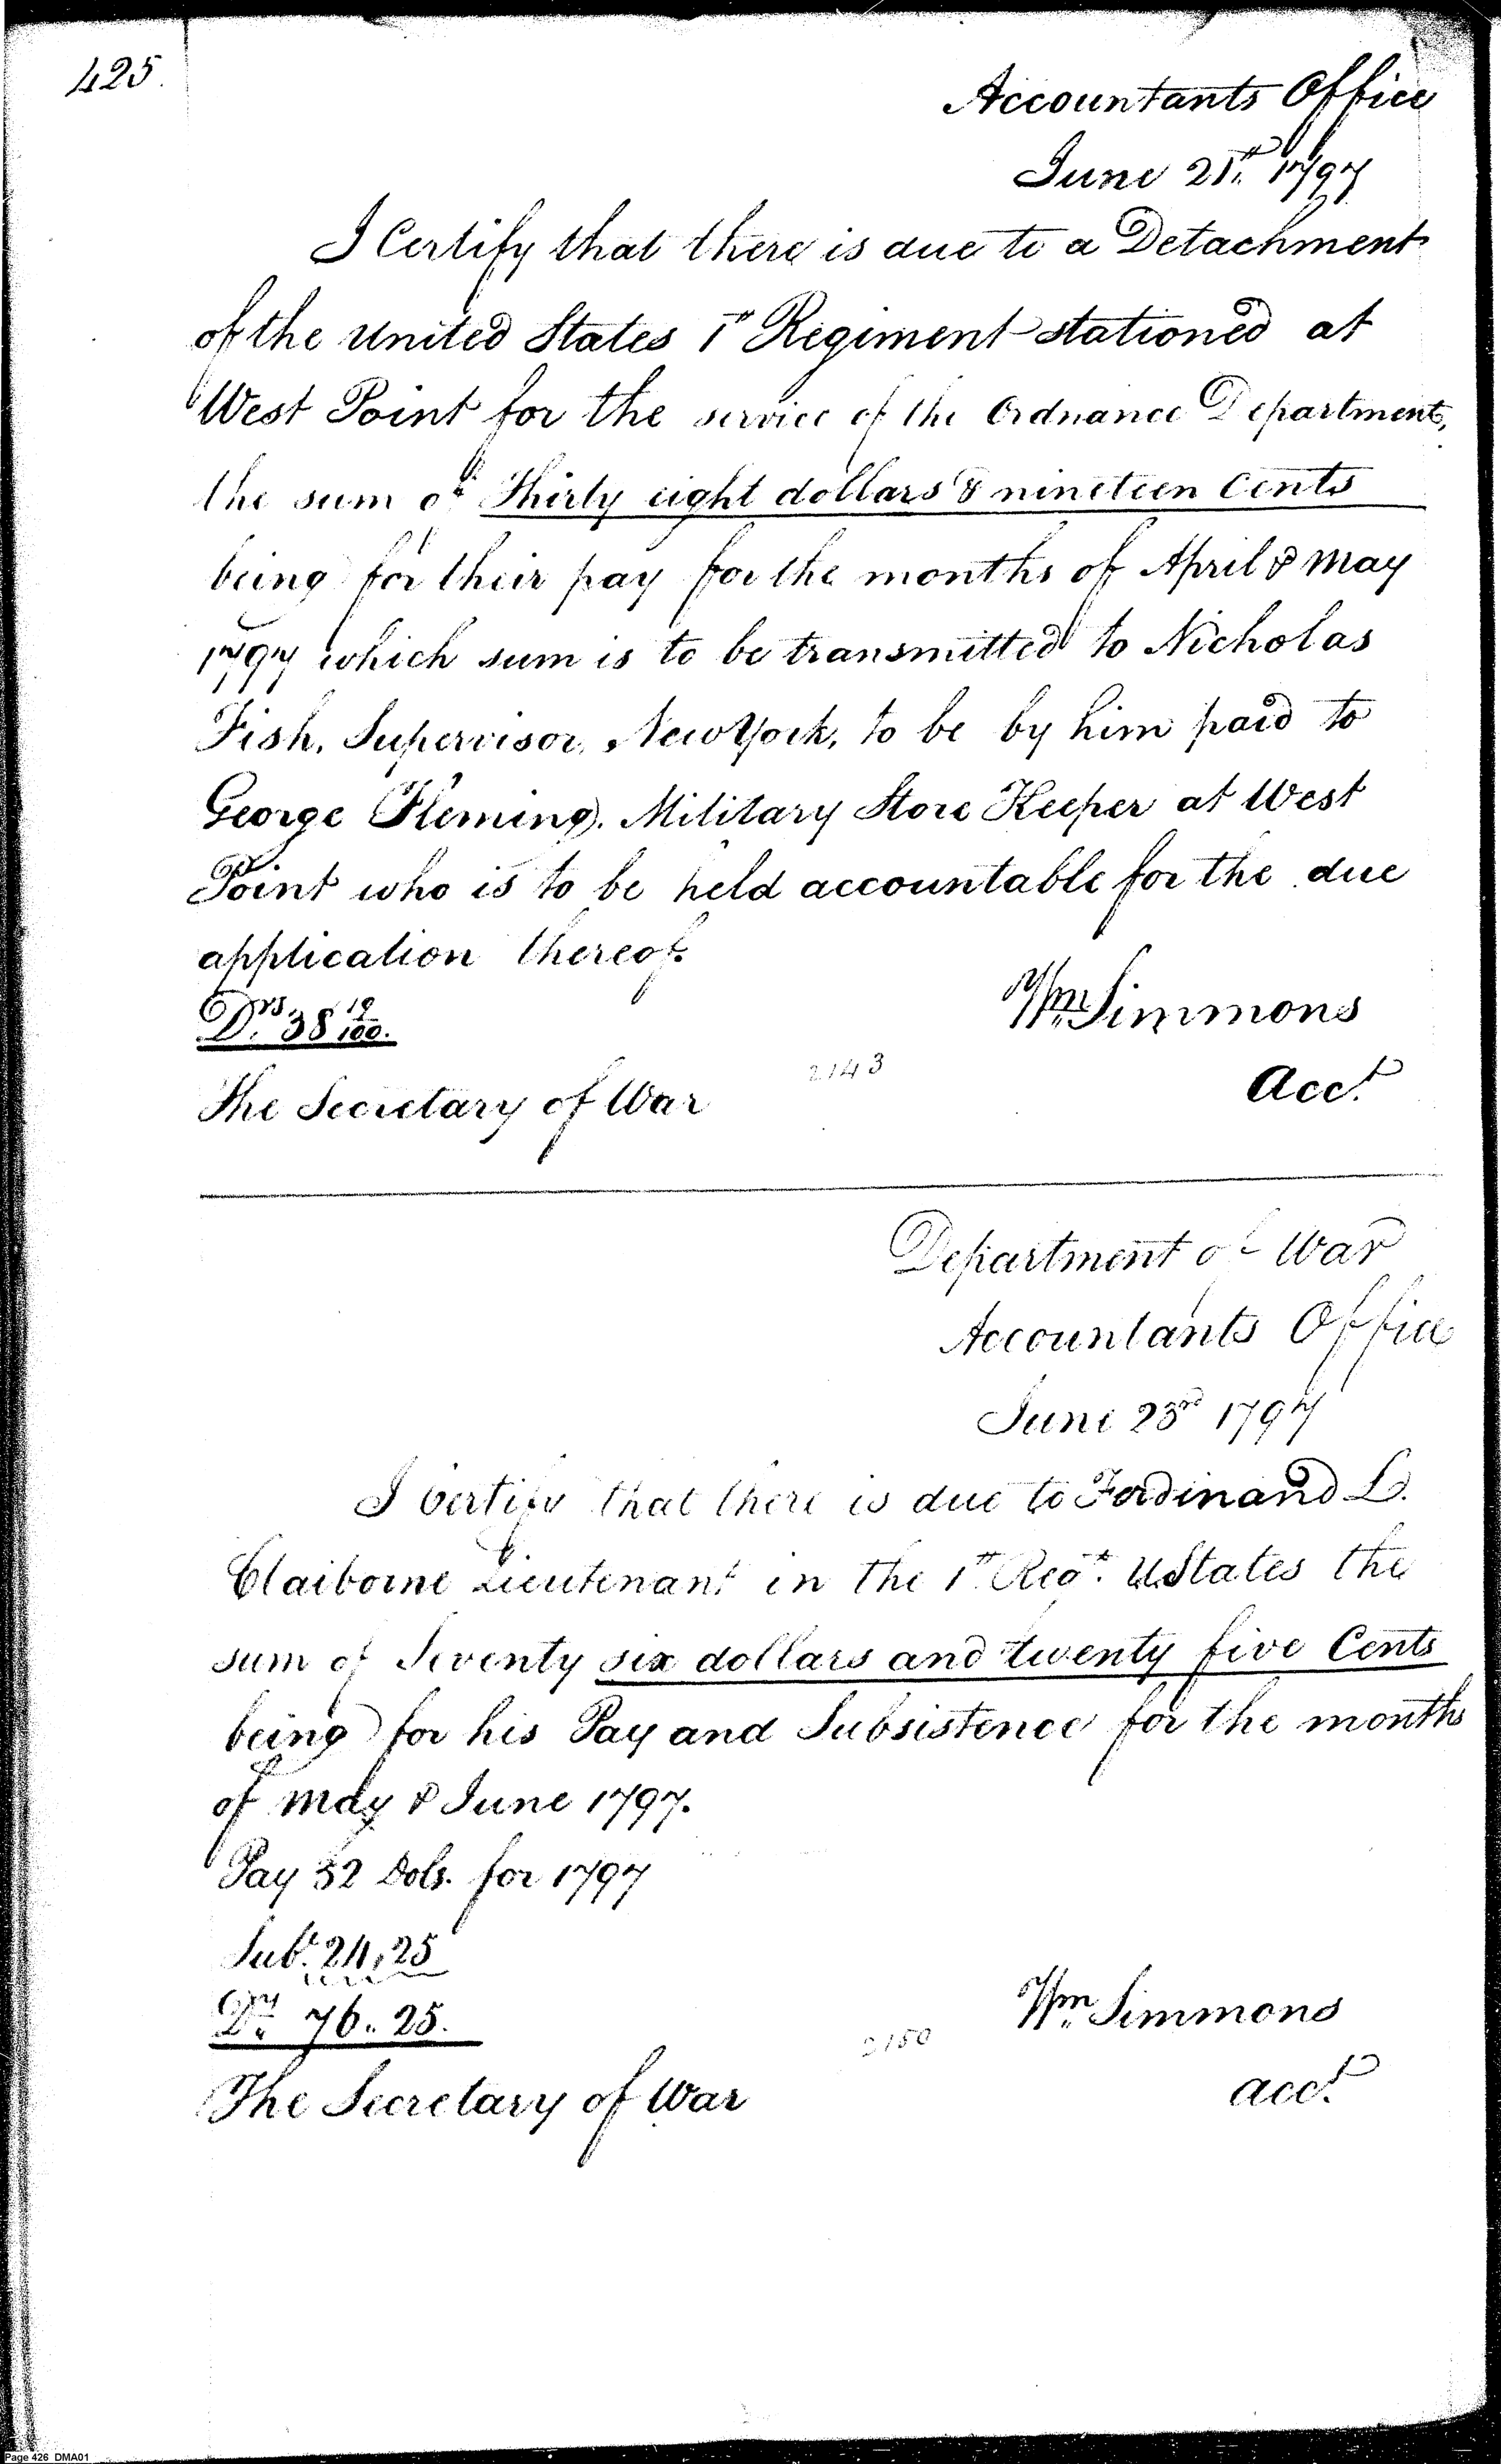 425.
Accountants Office
June 21st 1797
I Certify that there is due to a Detachment
of the United States 1st Regiment stationed at
West Point for the service of the Ordnance Department,
the sum of Thirty eight dollars & nineteen Cents
being for their pay for the months of April & May
1797 which sum is to be transmitted to Nicholas
Fish, Supervisor, New York, to be by him paid to
George Fleming, Military Store Keeper at West
Point who is to be held accountable for the due
application thereof.
Drs. 38 19/100.
Wm Simmons
2143
Acct.
The Secretary of War
Department of War
Accountants Office
June 23rd 1797
I Certify that there is due to Ferdinand L.
Claiborne Lieutenant in the 1st Regt. U States the
sum of Seventy six dollars and twenty five Cents
being for his Pay and Subsistence for the months
of May & June 1797.
Pay 52 Dols. for 1797
Subt. 24,25
76.. 25.
Wm Simmons
2150
acct.
The Secretary of War
Page 426 DMA01